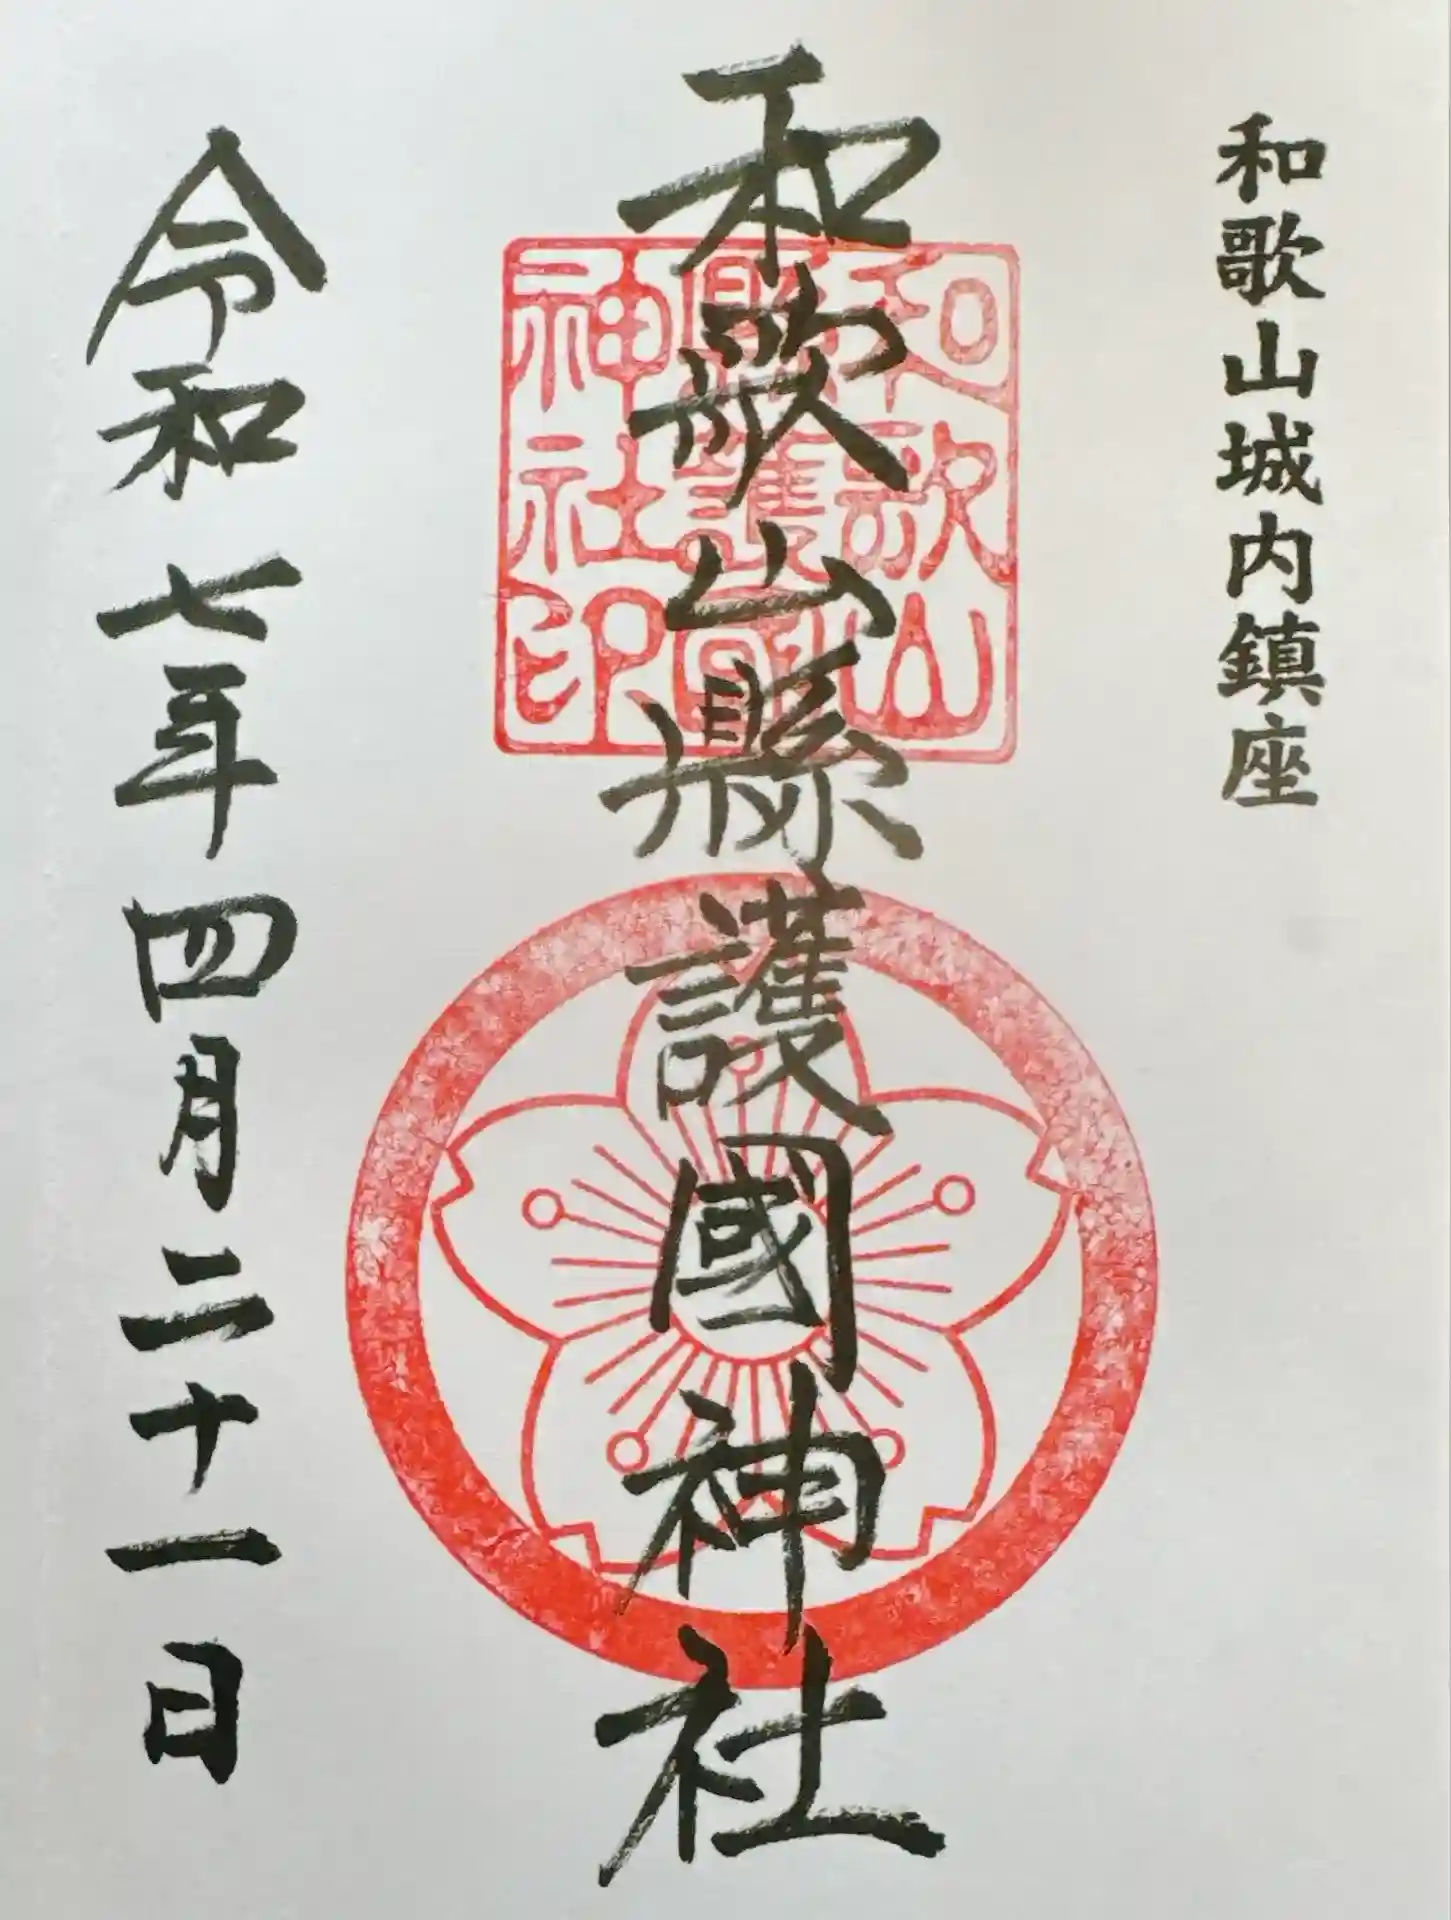 和歌山城内鎮座
和歌山縣護國神社
和歌山
縣護國
神社印
令和七年四月二十一日